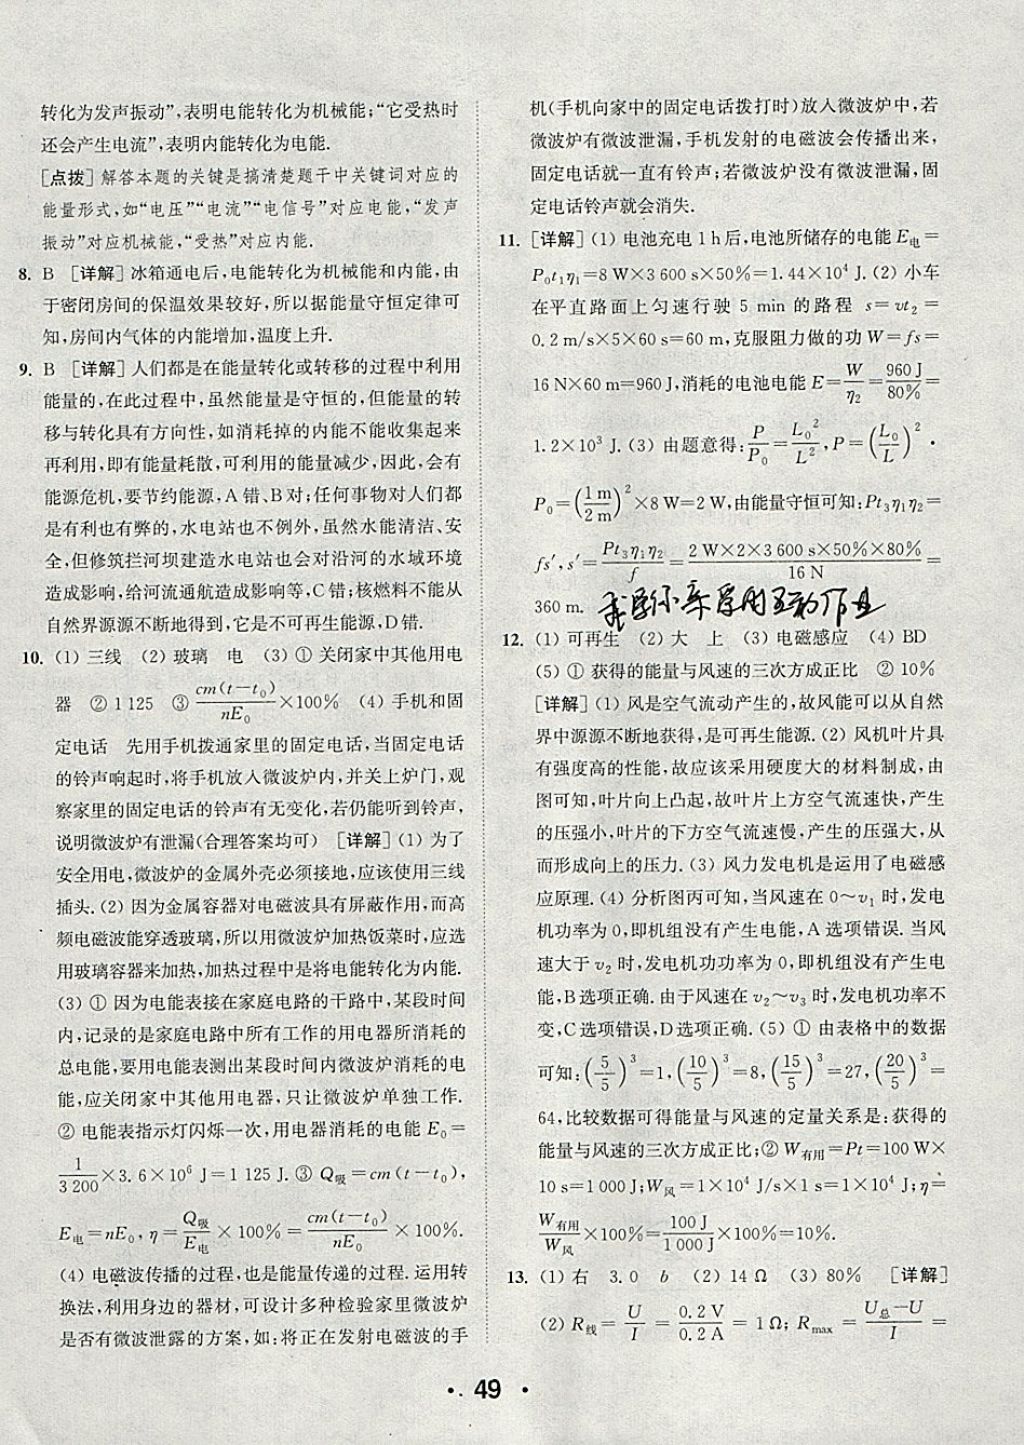 转化为发声振动”,表明电能转化为机械能;“它受热时
还会产生电流”,表明内能转化为电能.
[点拨] 解答本题的关键是搞清楚题干中关键词对应的
能量形式,如“电压”“电流”“电信号”对应电能,“发声
振动”对应机械能,“受热”对应内能.
8. B [详解] 冰箱通电后,电能转化为机械能和内能,由
于密闭房间的保温效果较好,所以据能量守恒定律可
知,房间内气体的内能增加,温度上升.
9. B [详解] 人们都是在能量转化或转移的过程中利用
能量的,在此过程中,虽然能量是守恒的,但能量的转
移与转化具有方向性,如消耗掉的内能不能收集起来
再利用,即有能量耗散,可利用的能量减少,因此,会有
能源危机,要节约能源,A错、B对;任何事物对人们都
是有利也有弊的,水电站也不例外,虽然水能清洁、安
全,但修筑拦河坝建造水电站也会对沿河的水域环境
造成影响,给河流通航造成影响等,C错;核燃料不能从
自然界源源不断地得到,它是不可再生能源,D错.
10. (1) 三线 (2) 玻璃 电 (3) ① 关闭家中其他用电
器 ② 1 125 ③ cm(t-t₀)/nE₀×100% (4) 手机和固
定电话 先用手机拨通家里的固定电话,当固定电话
的铃声响起时,将手机放入微波炉内,并关上炉门,观
察家里的固定电话的铃声有无变化,若仍能听到铃声,
说明微波炉有泄漏(合理答案均可) [详解] (1) 为了
安全用电,微波炉的金属外壳必须接地,应该使用三线
插头.(2) 因为金属容器对电磁波具有屏蔽作用,而高
频电磁波能穿透玻璃,所以用微波炉加热饭菜时,应选
用玻璃容器来加热,加热过程中是将电能转化为内能.
(3) ① 因为电能表接在家庭电路的干路中,某段时间
内,记录的是家庭电路中所有工作的用电器所消耗的
总电能,要用电能表测出某段时间内微波炉消耗的电
能,应关闭家中其他用电器,只让微波炉单独工作.
② 电能表指示灯闪烁一次,用电器消耗的电能 E₀=
1/3 200×3.6×10⁶ J=1 125 J.③ Q吸=cm(t-t₀),
E电=nE₀,η=Q吸/E电×100%=cm(t-t₀)/nE₀×100%.
(4) 电磁波传播的过程,也是能量传递的过程.运用转
换法,利用身边的器材,可设计多种检验家里微波炉
是否有微波泄露的方案,如:将正在发射电磁波的手
机(手机向家中的固定电话拨打时)放入微波炉中,若
微波炉有微波泄漏,手机发射的电磁波会传播出来,
固定电话就一直有铃声;若微波炉没有微波泄漏,固
定电话铃声就会消失.
11. [详解] (1) 电池充电1 h后,电池所储存的电能 E电=
P₀t₁η₁=8 W×3 600 s×50%=1.44×10⁴ J.(2) 小车
在平直路面上匀速行驶 5 min 的路程 s=vt₂=
0.2 m/s×5×60 s=60 m,克服阻力做的功 W=fs=
16 N×60 m=960 J,消耗的电池电能 E=W/η₂=960 J/80%=
1.2×10³ J.(3) 由题意得:P/P₀=L₀²/L²,P=(L₀/L)²·
P₀=(1 m/2 m)²×8 W=2 W,由能量守恒可知:Pt₃η₁η₂=
fs′,s′=Pt₃η₁η₂/f=2 W×2×3 600 s×50%×80%/16 N=
360 m.
12. (1) 可再生 (2) 大 上 (3) 电磁感应 (4) BD
(5) ① 获得的能量与风速的三次方成正比 ② 10%
[详解] (1) 风是空气流动产生的,故风能可以从自然
界中源源不断地获得,是可再生能源.(2) 风机叶片具
有强度高的性能,故应该采用硬度大的材料制成,由
图可知,叶片向上凸起,故叶片上方空气流速快,产生
的压强小,叶片的下方空气流速慢,产生的压强大,从
而形成向上的压力.(3) 风力发电机是运用了电磁感
应原理.(4) 分析图丙可知,当风速在0～v₁时,发电
机功率为0,即机组没有产生电能,A选项错误.当风
速大于v₂时,发电机功功率为0,即机组没有产生电
能,B选项正确.由于风速在v₂～v₃时,发电机功率不
变,C选项错误,D选项正确.(5) ① 由表格中的数据
可知:(5/5)³=1,(10/5)³=8,(15/5)³=27,(20/5)³=
64,比较数据可得能量与风速的定量关系是:获得的
能量与风速的三次方成正比;② W有用=Pt=100 W×
10 s=1 000 J;W风=1×10⁴ J/s×1 s=1×10⁴ J;η=
W有用/W风×100%=100 J/1 000 J×100%=10%.
13. (1) 右 3.0 b (2) 14 Ω (3) 80% [详解]
(2) R线=U/I=0.2 V/0.2 A=1 Ω;Rmax=U总-U/I=
· 49 ·